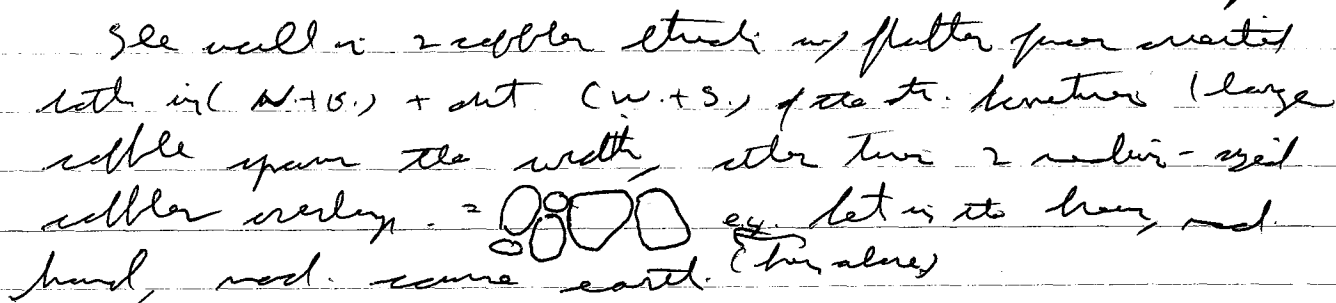 The wall is 2 cobbles thick w/ flatter faces oriented
both in (N.+E.) + out (W.+S.) of the str. Sometimes 1 large
cobble spans the width, other times 2 medium-sized
cobbles overlap. = eg. Set in the brown, mod.
hard, mod. coarse earth. (has above)